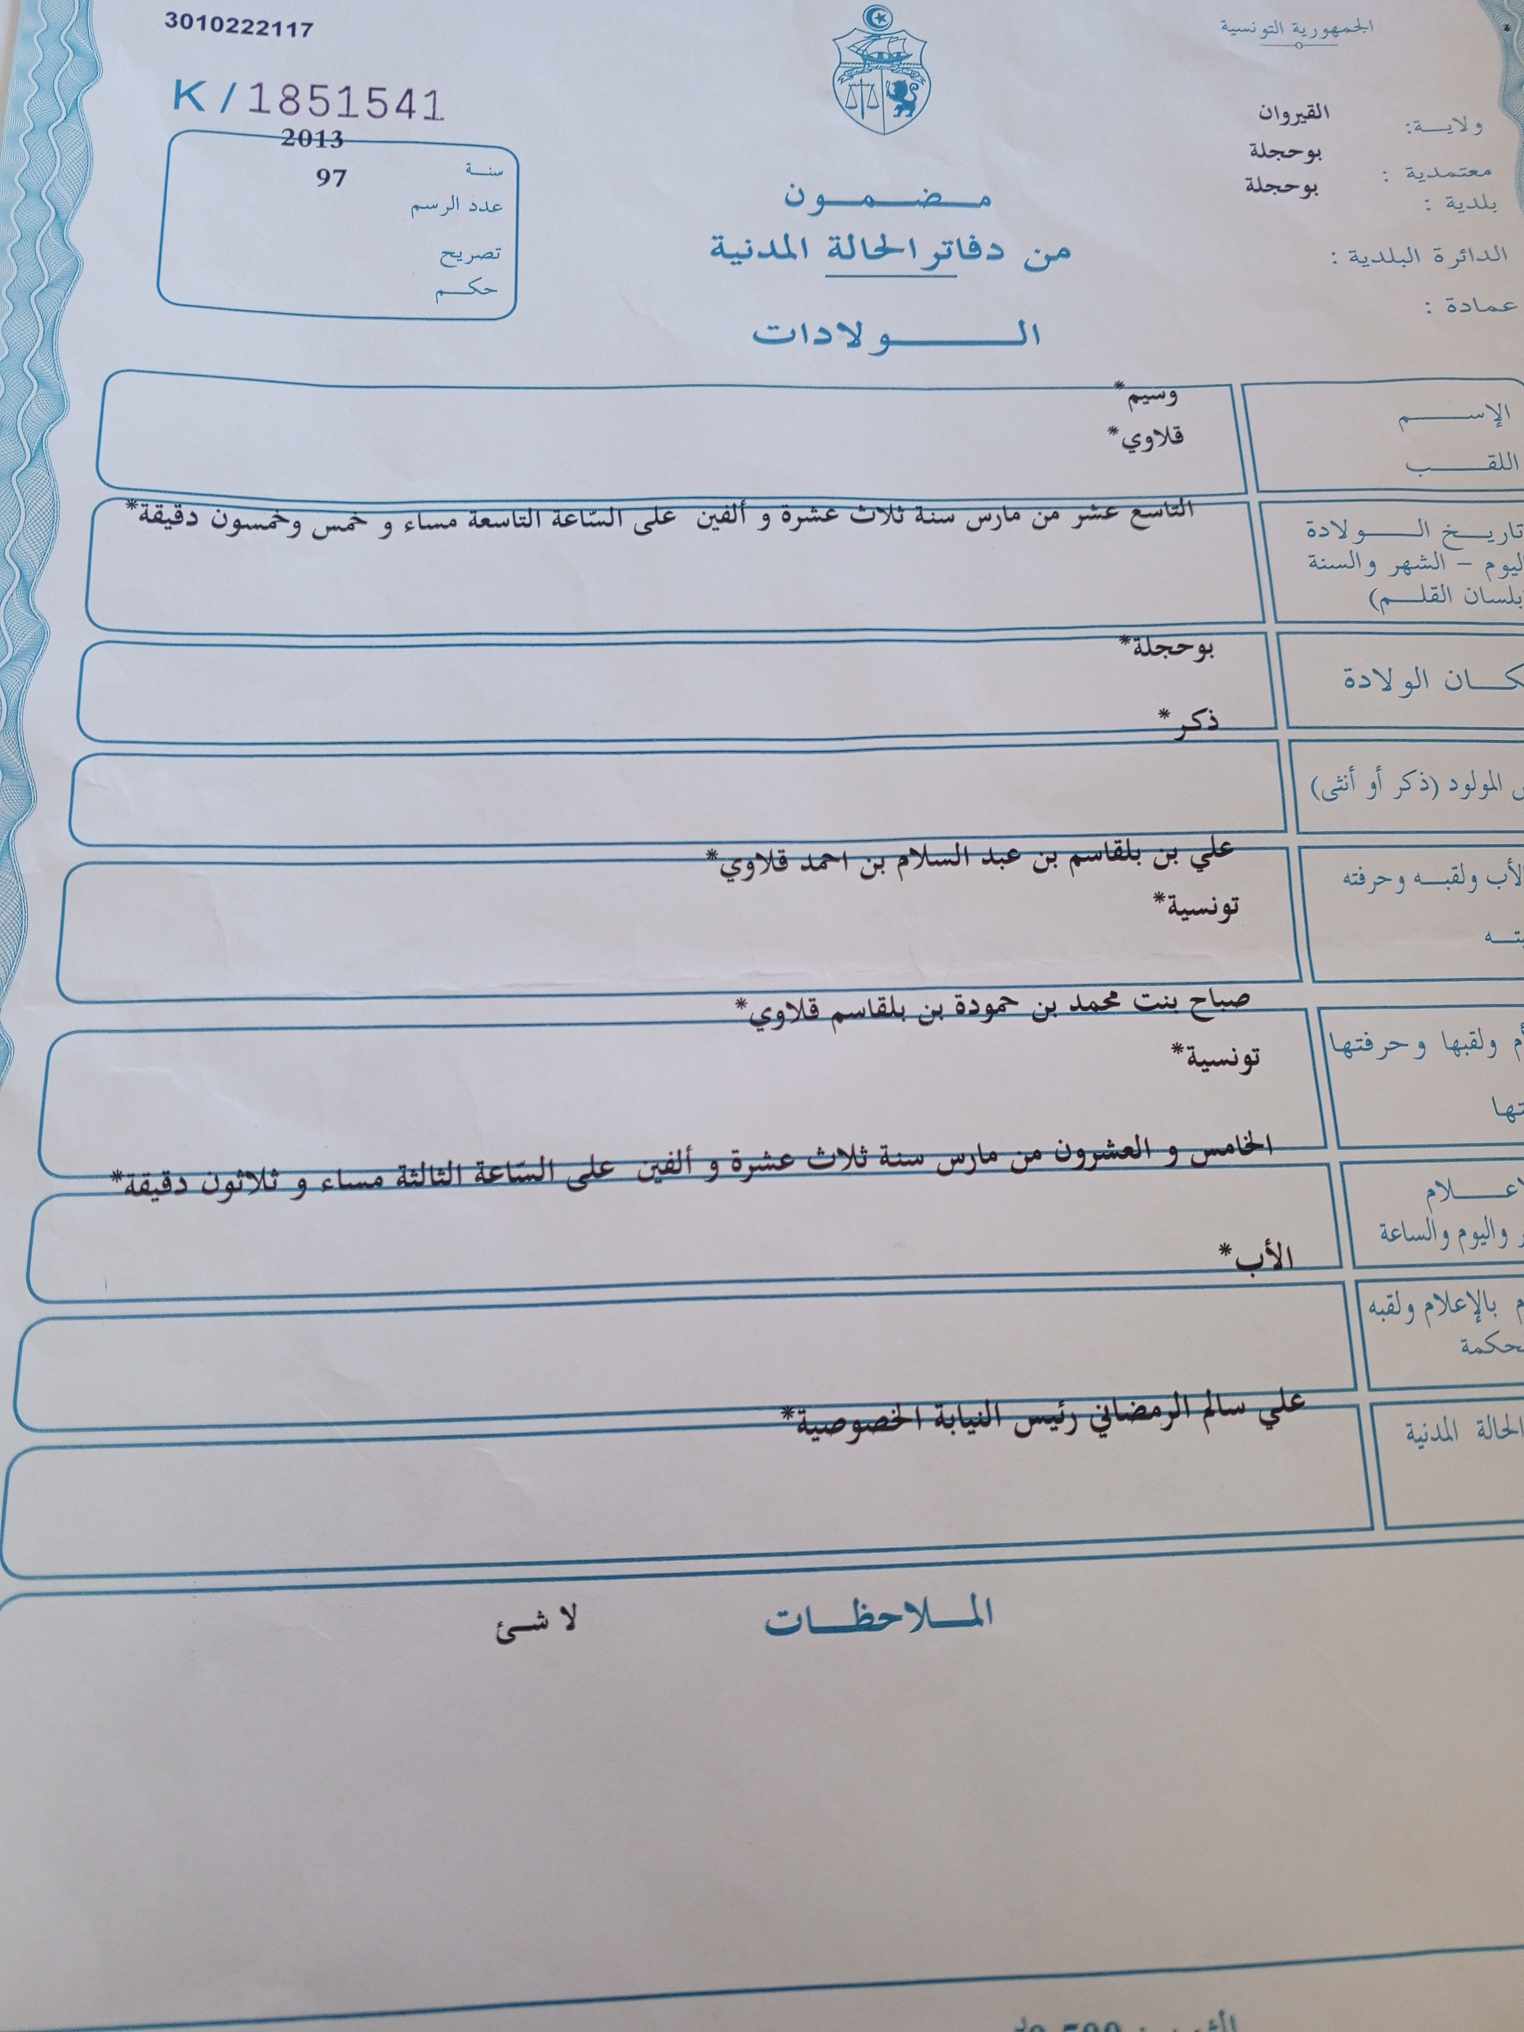 3010222117
K / 1851541
الجمهورية التونسية
ولاية: القيروان
معتمدية : بوحجلة
بلدية : بوحجلة
الدائرة البلدية :
عمادة :
2013
سنة
عدد الرسم 97
تصريح
حكم
مضمون
من دفاتر الحالة المدنية
الولادات
الإسم وسيم*
اللقب قلاوي*
تاريخ الولادة التاسع عشر من مارس سنة ثلاث عشرة و ألفين على السّاعة التاسعة مساء و خمس وخمسون دقيقة*
اليوم – الشهر والسنة
بلسان القلم)
كان الولادة بوحجلة*
ذكر*
المولود (ذكر أو أنثى)
الأب ولقبه وحرفته علي بن بلقاسم بن عبد السلام بن احمد قلاوي*
تونسية*
ولقبها وحرفتها صباح بنت محمد بن حمودة بن بلقاسم قلاوي*
تونسية*
الخامس و العشرون من مارس سنة ثلاث عشرة و ألفين على السّاعة الثالثة مساء و ثلاثون دقيقة*
لاعلام
واليوم والساعة
الأب*
بالإعلام ولقبه
حكمة
علي سالم الرمضاني رئيس النيابة الخصوصية*
الحالة المدنية
الملاحظات لا شئ